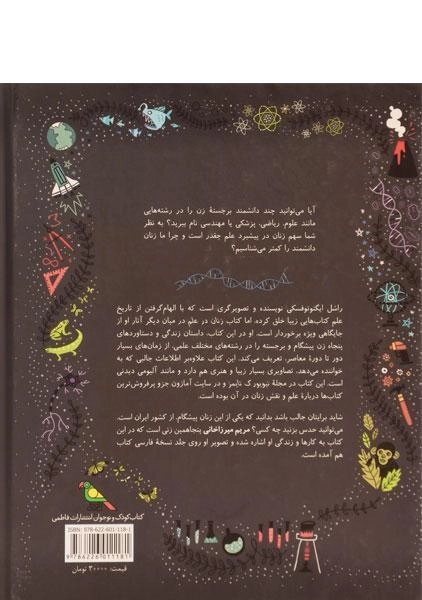 آیا می‌توانید چند دانشمند برجستهٔ زن را در رشته‌هایی
مانند علوم، ریاضی، پزشکی یا مهندسی نام ببرید؟ به نظر
شما سهم زنان در پیشبرد علم چقدر است و چرا ما زنان
دانشمند را کمتر می‌شناسیم؟
راشل ایگنوتوفسکی نویسنده و تصویرگری است که با الهام‌گرفتن از تاریخ
علم کتاب‌هایی زیبا خلق کرده، اما کتاب زنان در علم در میان دیگر آثار او از
جایگاهی ویژه برخوردار است. او در این کتاب، داستان زندگی و دستاوردهای
پنجاه زن پیشگام و برجسته را در رشته‌های مختلف علمی، از زمان‌های بسیار
دور تا دورهٔ معاصر، تعریف می‌کند. این کتاب علاوه‌بر اطلاعات جالبی که به
خواننده می‌دهد، تصاویری بسیار زیبا و هنری هم دارد و مانند آلبومی دیدنی
است. این کتاب در مجلهٔ نیویورک تایمز و در سایت آمازون جزو پرفروش‌ترین
کتاب‌ها دربارهٔ علم و نقش زنان در آن بوده است.
شاید برایتان جالب باشد بدانید که یکی از این زنان پیشگام، از کشور ایران است.
می‌توانید حدس بزنید چه کسی؟ مریم میرزاخانی پنجاهمین زنی است که در این
کتاب به کارها و زندگی او اشاره شده و تصویر او روی جلد نسخهٔ فارسی کتاب
هم آمده است.
کتاب کودک و نوجوان انتشارات فاطمی
ISBN: 978-622-601-118-1
9786226011181
قیمت: ۳۰۰۰۰ تومان